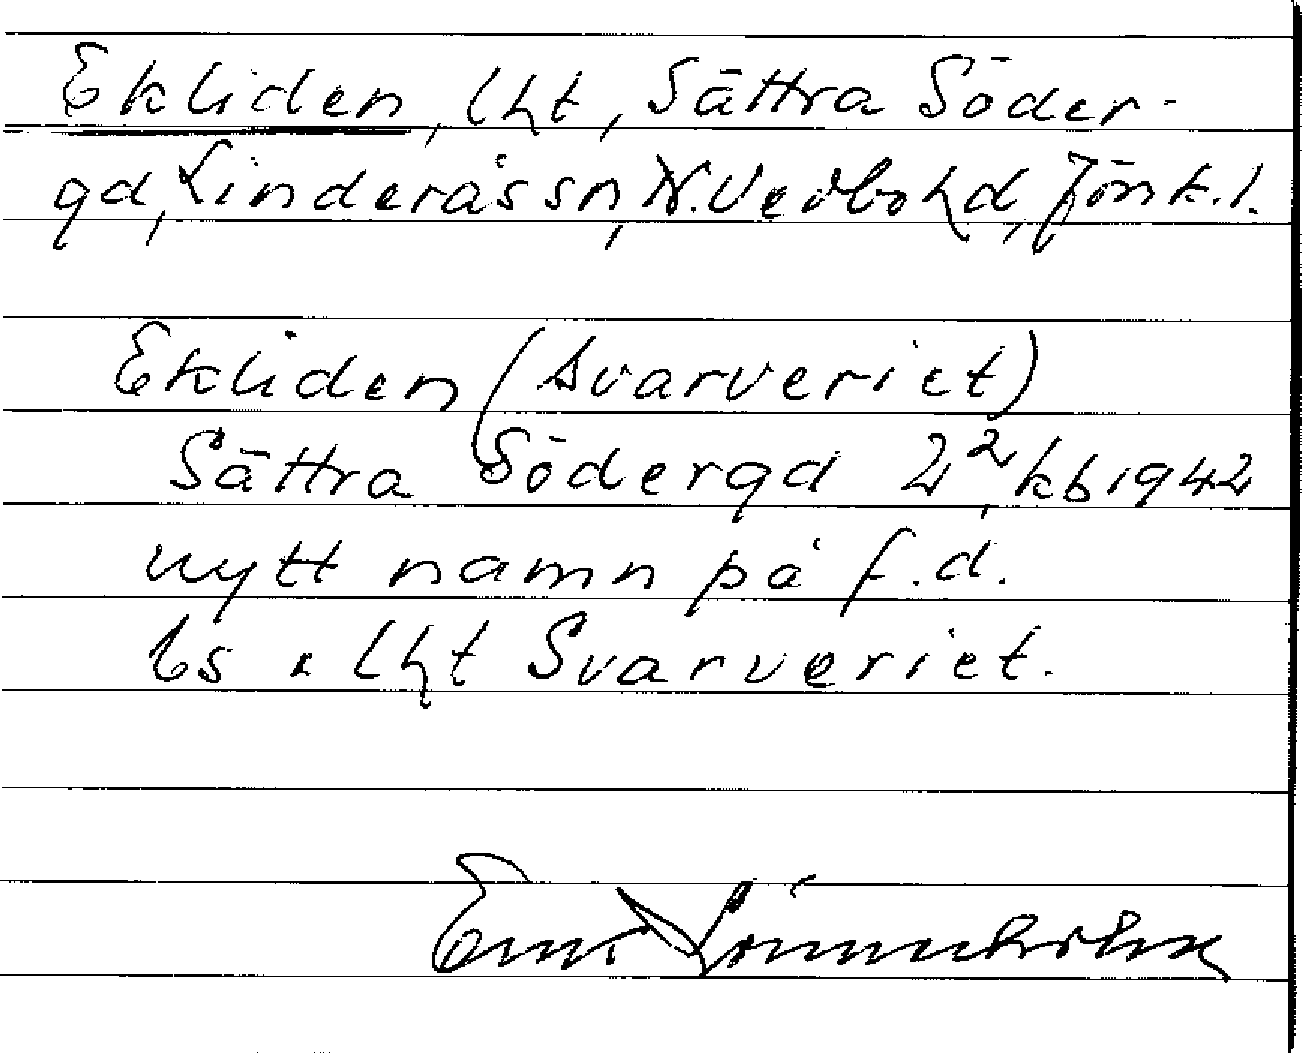 Ekliden, lht, Sättra Söder-
gd, Linderås sn, N. Vedbo hd, Jönk. l.
Ekliden (Svarveriet)
Sättra Södergd 2², kb 1942
nytt namn på f.d.
bs o lht Svarveriet.